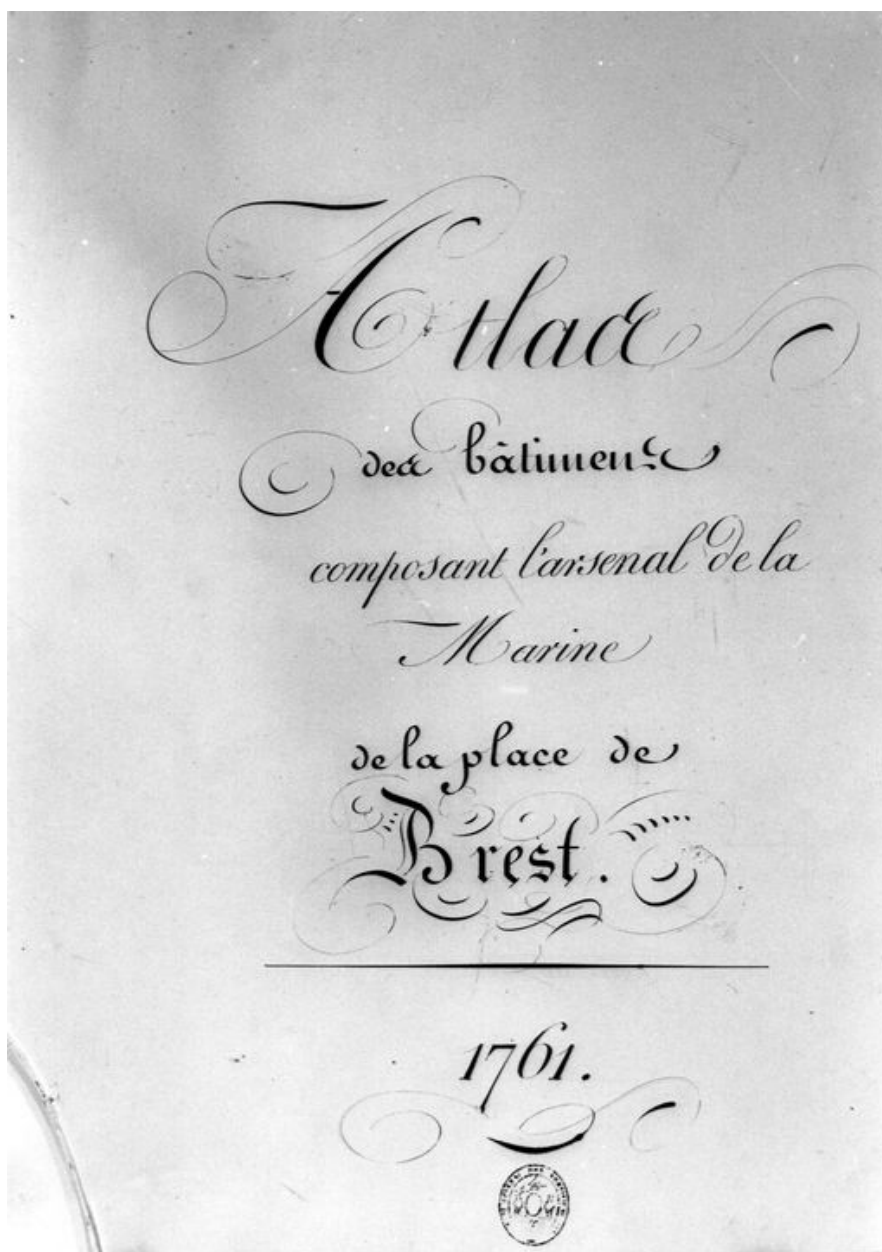 Atlas
des bâtimens
composant l'arsenal de la
Marine
de la place de
Brest.
1761.